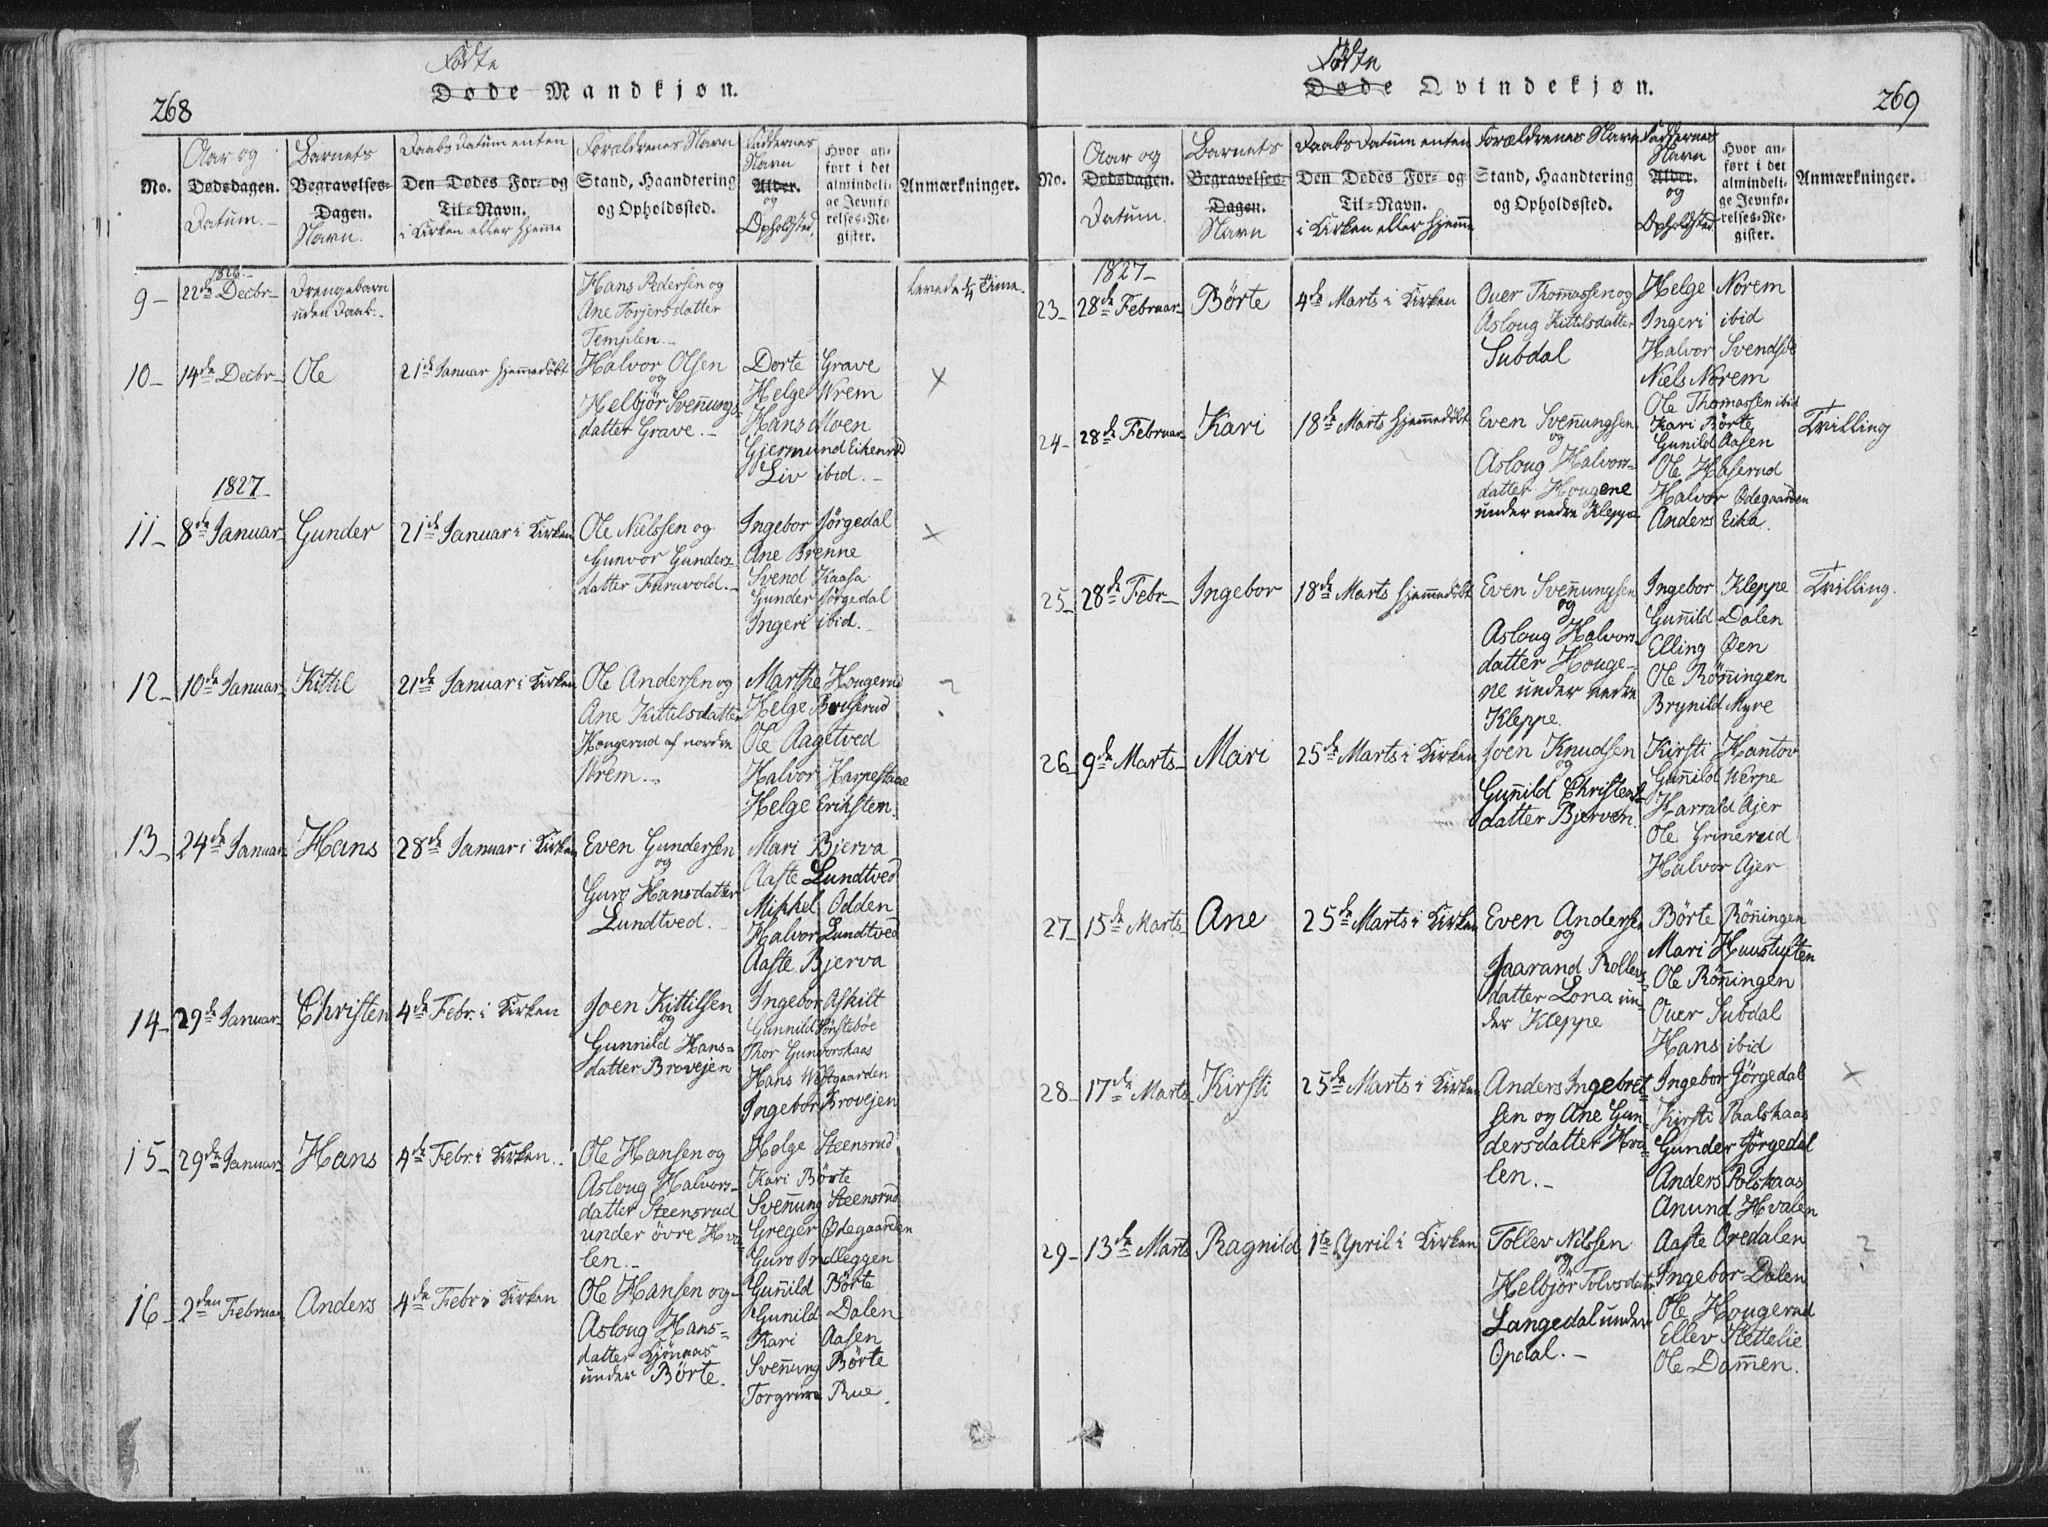 268
Fødte
Døde Mandkjøn.
No.
Aar og
Dødsdagen.
Datum.
Barnets
Begravelses-
Dagen.
Navn.
Daabs Datum enten
Den Dødes For- og
Til-Navn.
i Kirken eller Hjeme
Forældrenes Navn
Stand, Haandtering
og Opholdssted.
Faddernes
Navn
Alder.
og
Opholdsted.
Hvor an-
ført i det
almindeli-
ge Jevnfø-
relses-Re-
gister.
Anmærkninger.
1826
9 - 22de Decbr - Drengebarn
uden Daab.
Hans Pedersen og
Ane Torjersdatter
Templen.
levede 1/4 Time.
10 - 14de Decbr - Ole
21de Januar Hjemmedøbt
Halvor Olsen
og
Helbjør Svennungs-
datter Grave.
Dorte Grave
Helge Wrem
Hans Moen
Gjermund Eikenrød
Liv ibid.
X
1827
11 - 8de Januar - Gunder
21de Januar i Kirken
Ole Nielssen og
Gunvor Gunders-
datter Furuvold.
Ingebor Jørgedal
Ane Brenne
Svend Kaasa
Gunder Jørgedal
Ingeri ibid.
X
12 - 10de Januar - Kittil
21de Januar i Kirken
Ole Andersen og
Ane Kittilsdatter
Hougerud af nordre
Wrem.
Marthe Hougerud
Helge Bruserud
Ole Aagetved
Halvor Harpestaae
Helge Erikstein.
?
13 - 24de Januar - Hans
28de Januar i Kirken
Even Gundersen
og
Guro Hansdatter
Lundtved.
Mari Bjerva
Aaste Lundtved
Mikkel Odden
Halvor Lundtved
Aaste Bjerva
14 - 29de Januar - Christen
4de Febr. i Kirken
Joen Kittilsen
og
Gunnild Hans-
datter Brovejen
Ingebor Askilt
Gunnild Tønstebøe
Thor Gunvorskaas
Hans Westgaarden
Ingebor Brovejen
15 - 29de Januar - Hans
4de Febr. i Kirken.
Ole Hansen og
Asloug Halvors-
datter Steensrud
under øvre Hva-
len.
Helge Steensrud
Kari Børte
Svennung Steensrud
Greger Ødegaarden
Guro Prælleggen
16 - 2den Februar Anders
4de Febr i Kirken
Ole Hansen og
Asloug Hans-
datter Kjønaas
under Børte.
Gunnild Børte
Gunild Dalen
Kari Aasen
Svennung Børte
Torgrim Rue.
269
Fødte
Døde Qvindekjøn.
No.
Aar og
Dødsdagen.
Datum.
Barnets
Begravelses-
Dagen.
Navn
Daabs Datum enten
Den Dødes For- og
Til-Navn.
i Kirken eller Hjeme
Forældrenes Navn
Stand, Haandtering
og Opholdssted.
Faddernes
Navn
Alder.
og
Opholdsted
Hvor an-
ført i det
almindeli-
ge Jevnfø-
relses-Re-
gister.
Anmærkninger.
1827
23 - 28de Februar - Børte
4de Marts i Kirken
Over Thomassen og
Asloug Kittilsdatter
Subdal
Helge Norem
Ingeri ibid
Halvor Svendsøe
Niels Norem
Ole Thomassen ibid
24 - 28de Februar - Kari
18de Marts Hjemmedøbt
Even Svennungsen
og
Asloug Halvors-
datter Hougene
under nedre Kleppe
Kari Børte
Gunild Aasen
Ole Haserud
Halvor Ødegaarden
Anders Eika.
†
Tvilling
25 - 28de Febr - Ingebor
18de Marts Hjemmedøbt
Even Svennungsen
og
Asloug Halvors-
datter Houge-
ne under nedre
Kleppe.
Ingebor Kleppe
Gunnild Dalen
Elling Øen
Ole Rønningen
Brynild Myre
†
Tvilling.
26 - 9de Marts - Mari
25de Marts i Kirken
Joen Knudsen
og
Gunnild Christens-
datter Bjerven.
Kirsti Kantov
Gunnild Werpe
Harrald Ajer
Ole Grinerud
Halvor Ajer
27 - 15de Marts - Ane
25de Marts i Kirken
Even Andersen
og
Jaarand Rollev-
datter Lona un-
der Kleppe
Børte Rønningen
Mari Huustuften
Ole Rønningen
Over Subdal
Hans ibid
28 - 17de Marts Kirsti
25de Marts i Kirken
Anders Ingebret-
sen og Ane Gun-
dersdatter Hva-
len.
Ingebor Jørgedal
Kirsti Paalskaas
Gunder Jørgedal
Anders Polskaas
Anund Hvalen
X
29 - 13de Marts Ragnild
1ste April i Kirken
Tollev Nilssen
og
Helbjør Tolvsdatr
Langedal under
Opdal.
Aaste Oredalen
Ingebor Dalen
Ole Hougerud
Ellev Slettelie
Ole Dammen.
?